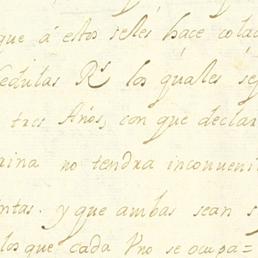 que á estos seles háce colac
Cedulas R.s los quales se
tres Años, con que declar
rina no tendra inconveni
ntas. y que ambas sean s
los que cada Vno se ocupa=